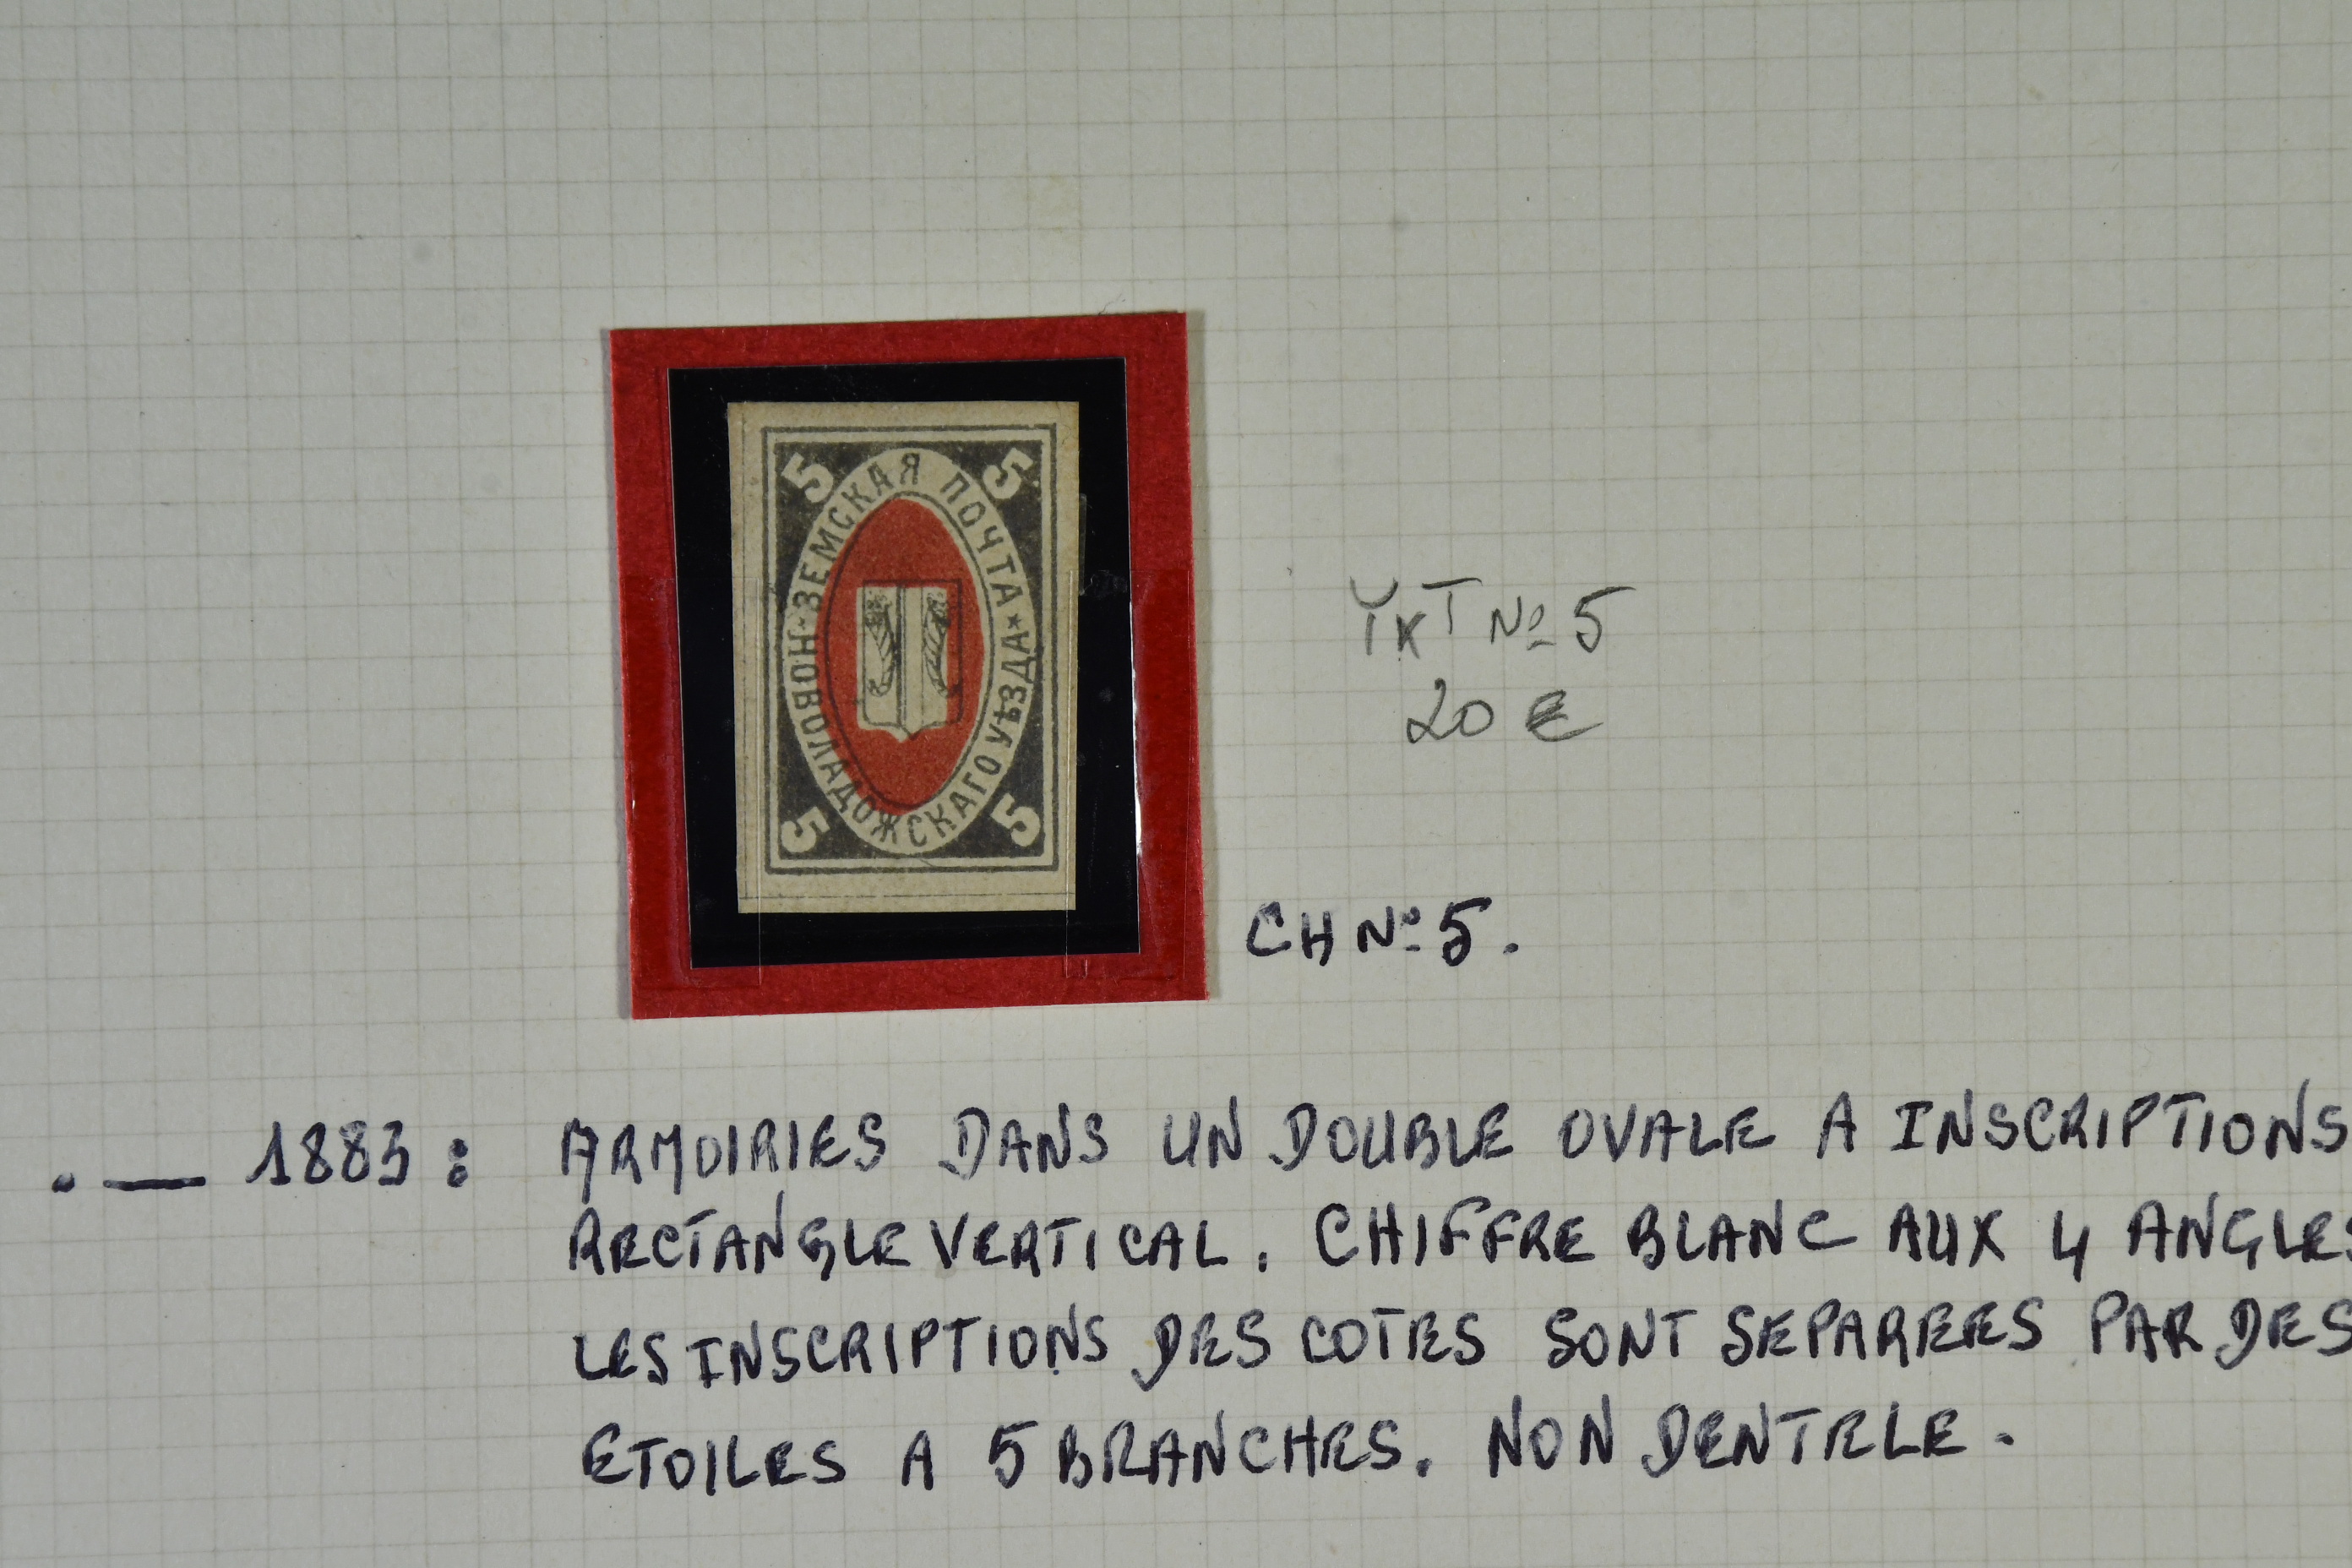 5 5
ЗЕМСКАЯ ПОЧТА *
НОВОЛАДОЖСКАГО УѢЗДА
5 5
YKT No 5
20 €
CH No 5.
. — 1883 : ARMOIRIES DANS UN DOUBLE OVALE A INSCRIPTIONS
RECTANGLE VERTICAL. CHIFFRE BLANC AUX 4 ANGLES
LES INSCRIPTIONS DES COTES SONT SEPAREES PAR DES
ETOILES A 5 BRANCHES. NON DENTELE.